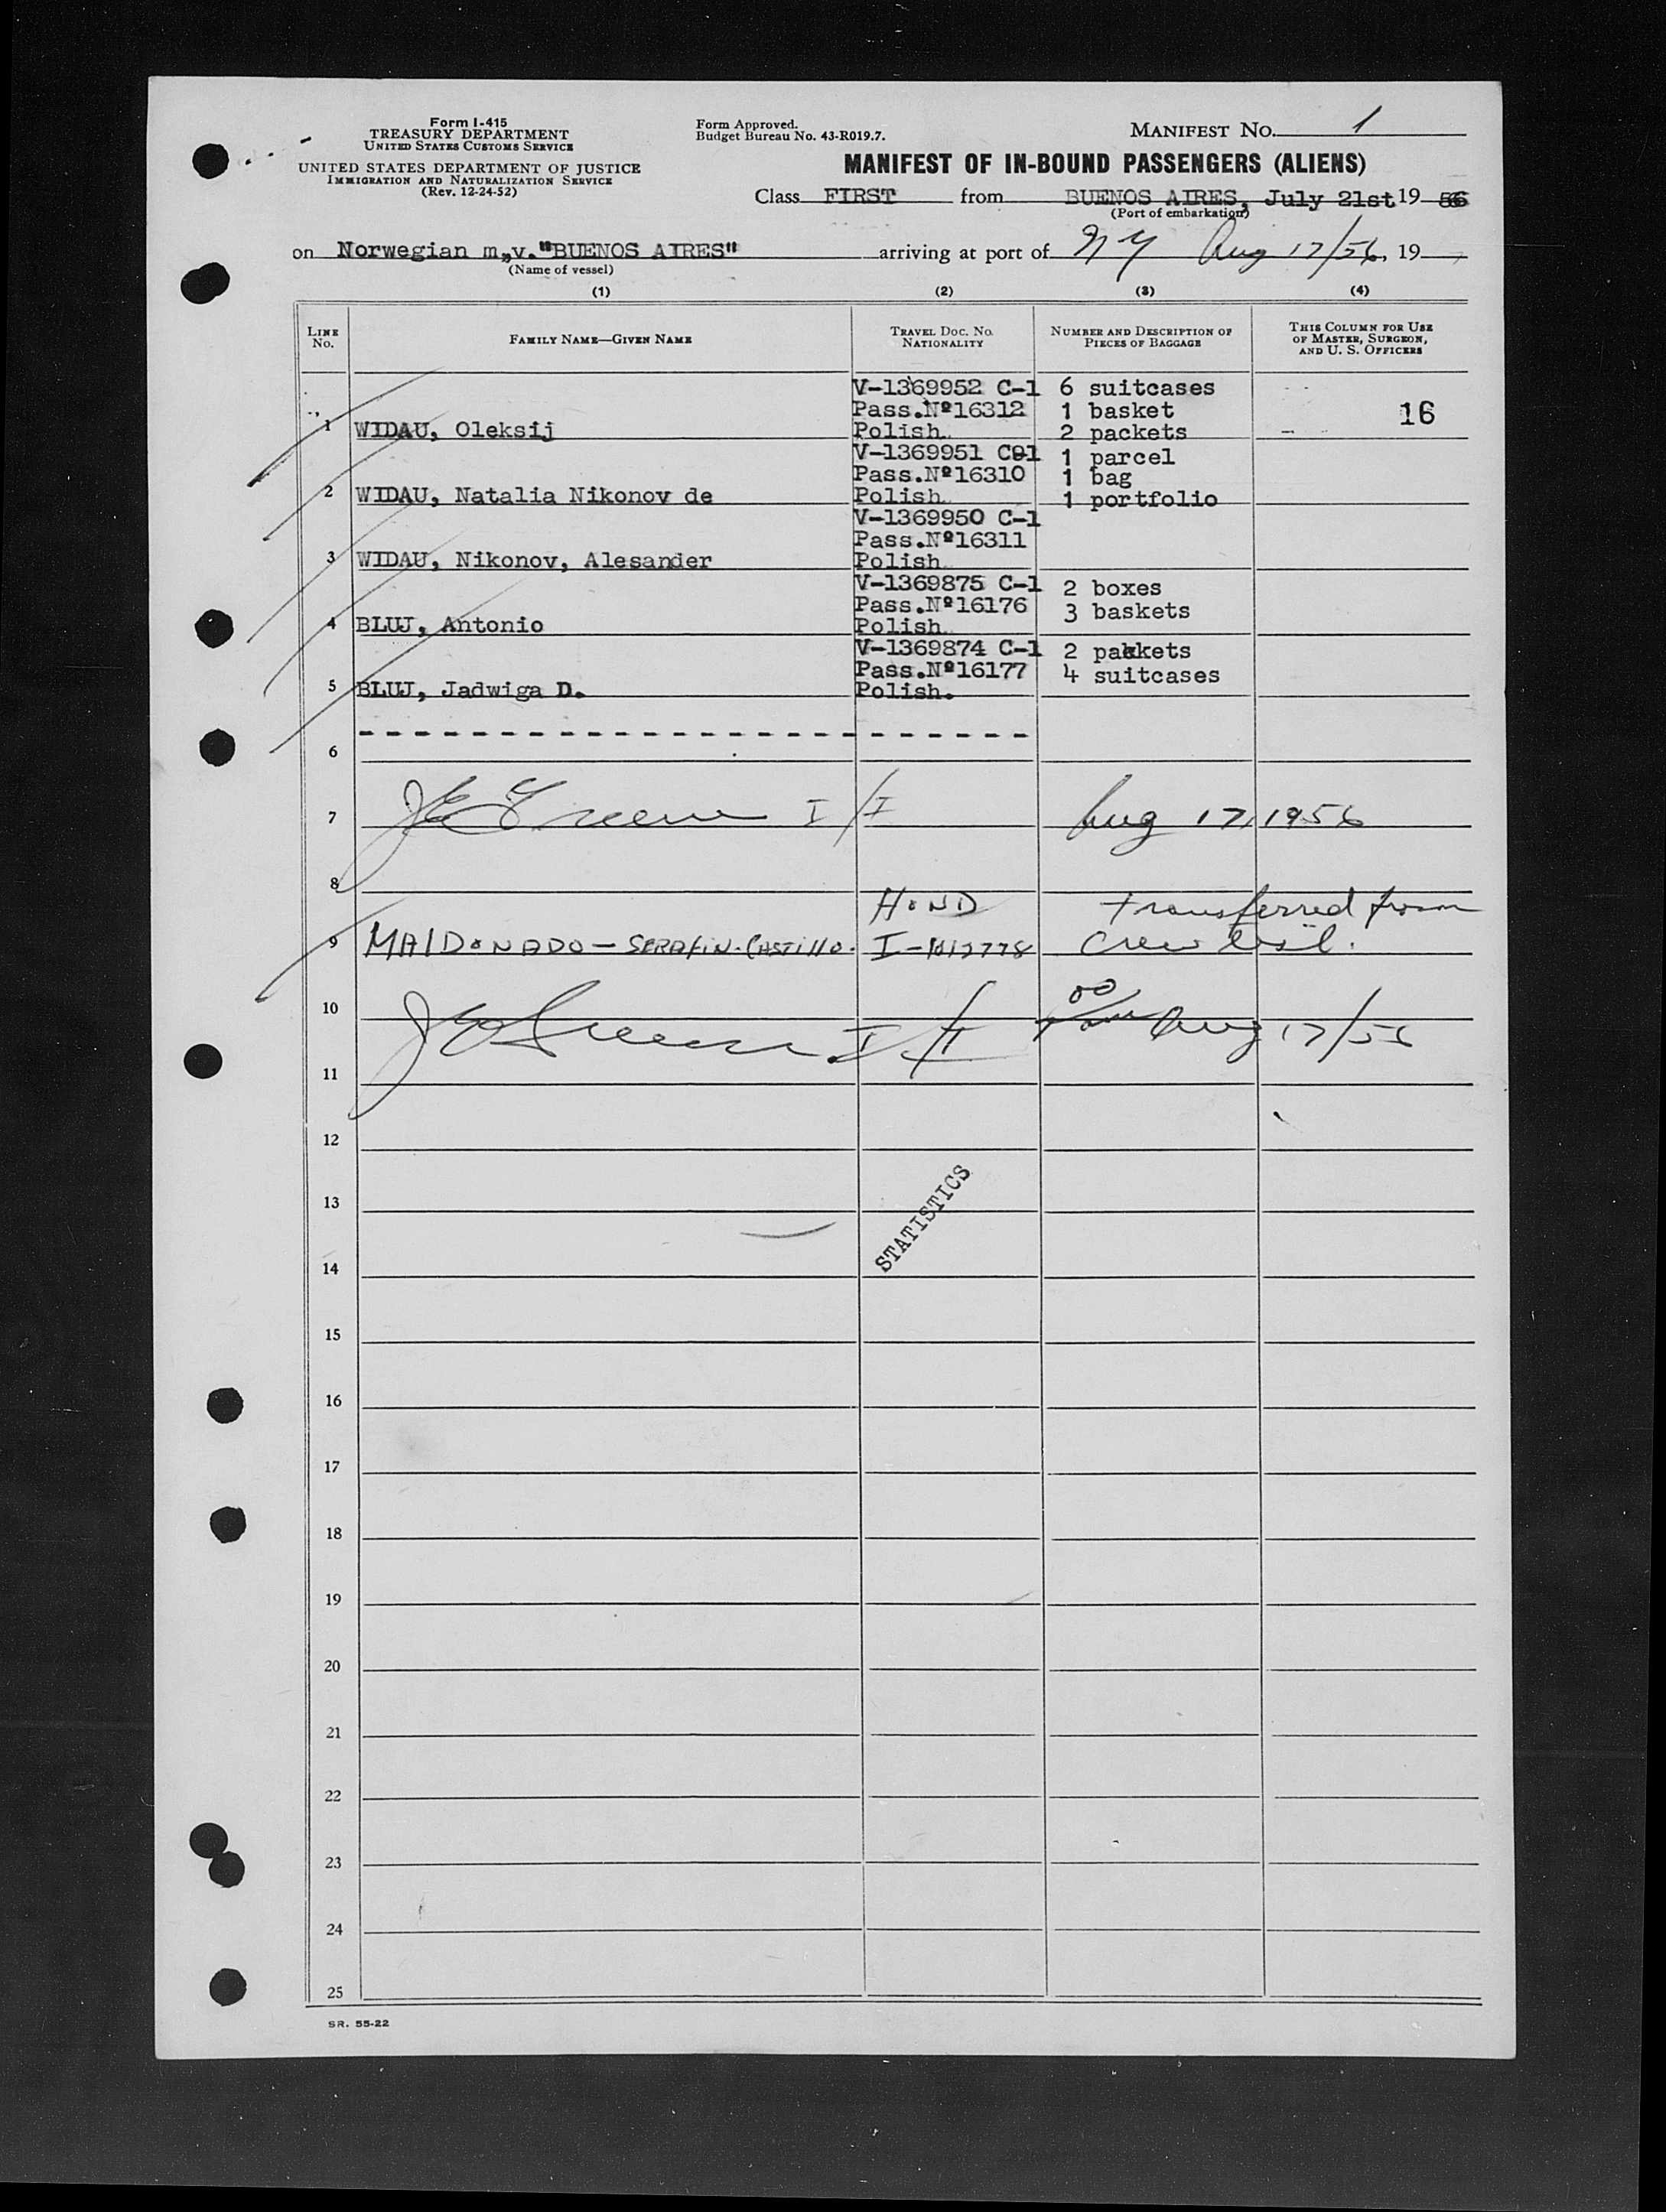 Form I-415
TREASURY DEPARTMENT
UNITED STATES CUSTOMS SERVICE
UNITED STATES DEPARTMENT OF JUSTICE
IMMIGRATION AND NATURALIZATION SERVICE
(Rev. 12-24-52)
Form Approved.
Budget Bureau No. 43-R019.7.
MANIFEST NO. 1
MANIFEST OF IN-BOUND PASSENGERS (ALIENS)
Class FIRST from BUENOS AIRES, July 21st 19 56
(Port of embarkation)
on Norwegian m.v. "BUENOS AIRES" arriving at port of NY Aug 17/56, 19
(Name of vessel)
(1) (2) (3) (4)
LINE No. FAMILY NAME—GIVEN NAME TRAVEL DOC. NO. NATIONALITY NUMBER AND DESCRIPTION OF PIECES OF BAGGAGE THIS COLUMN FOR USE OF MASTER, SURGEON, AND U. S. OFFICERS
V-1369952 C-1 6 suitcases
Pass.Nº16312 1 basket 16
1 WIDAU, Oleksij Polish 2 packets
V-1369951 C-1 1 parcel
Pass.Nº16310 1 bag
2 WIDAU, Natalia Nikonov de Polish 1 portfolio
V-1369950 C-1
Pass.Nº16311
3 WIDAU, Nikonov, Alesander Polish
V-1369875 C-1 2 boxes
Pass.Nº16176 3 baskets
4 BLUJ, Antonio Polish
V-1369874 C-1 2 packets
Pass.Nº16177 4 suitcases
5 BLUJ, Jadwiga D. Polish.
6
7 J E Greene I/I Aug 17, 1956
8
HOND transferred from
9 MALDONADO - SERAFIN - CASTILLO. crew list.
10 J E Greene I/I Aug 17/56
11
12
13
STATISTICS
14
15
16
17
18
19
20
21
22
23
24
25
SR. 55-22